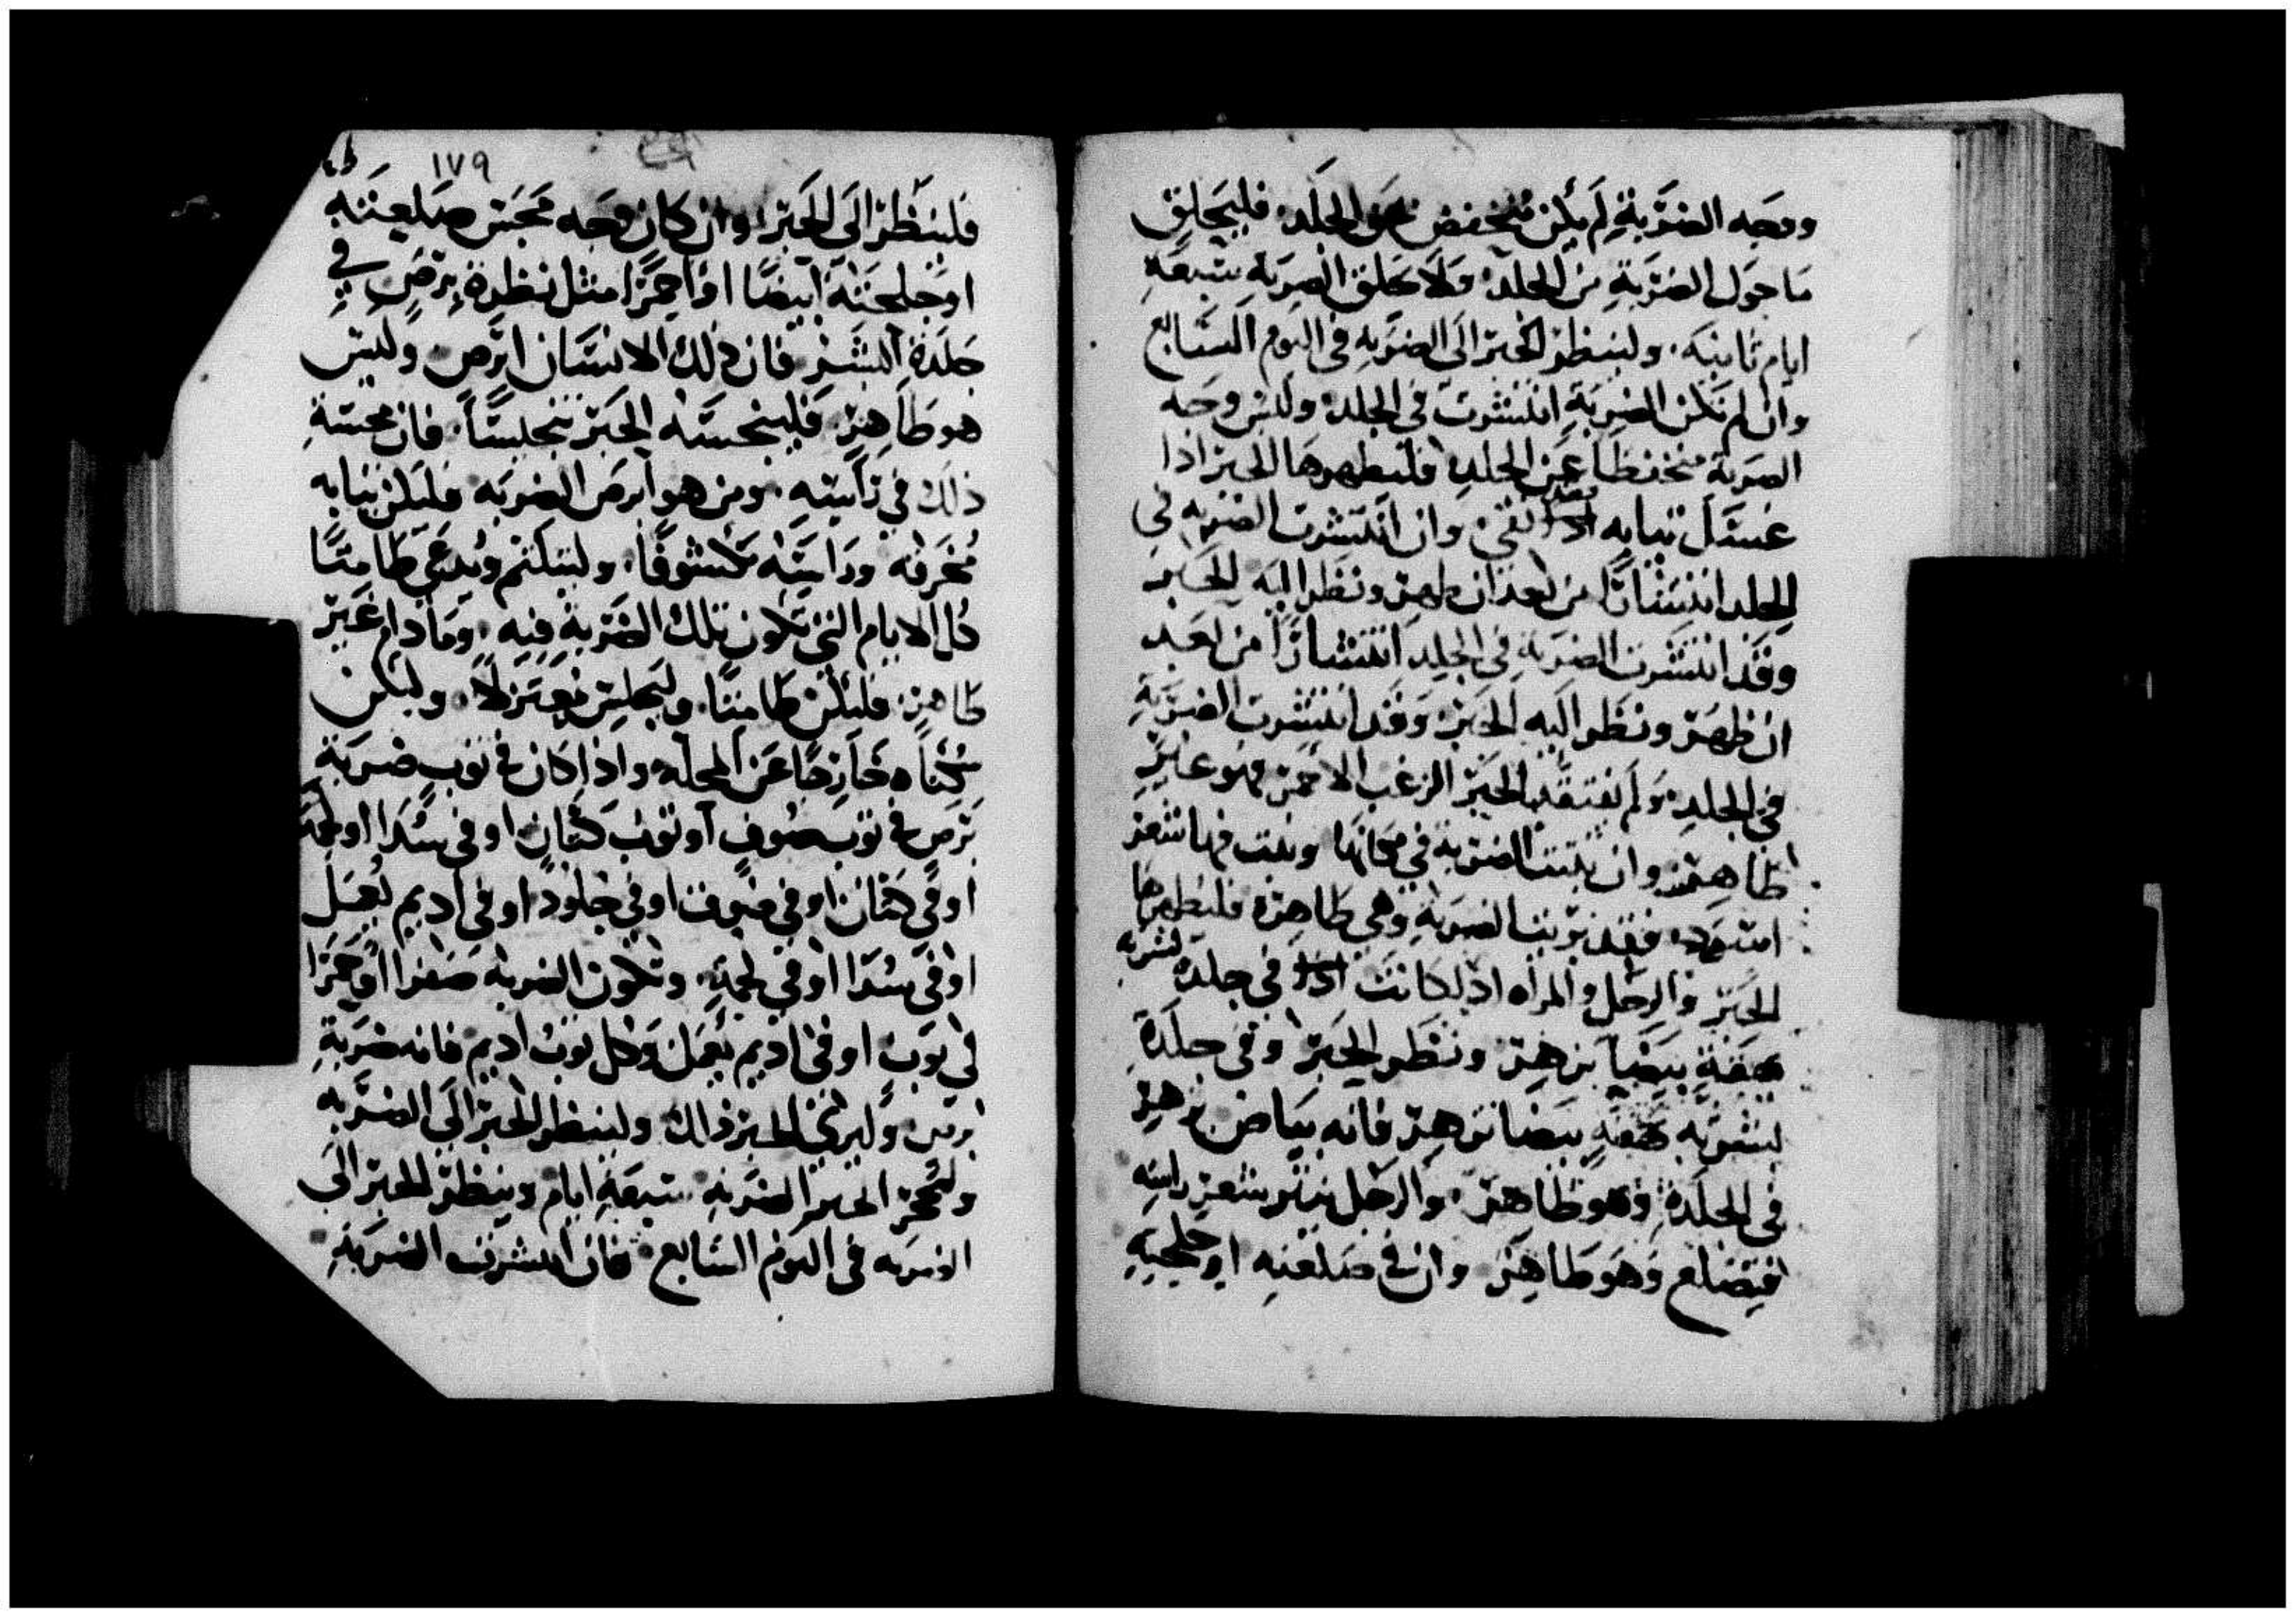 ووجه الضربة لم يكن منخفض عن الجلد فليحلق
ما حول الضربة من الجلد ولا يحلق الضربة سبعة
ايام ثانية ولينظر الحبر الى الضربه في اليوم السابع
وان لم تكن الضربة انتشرت في الجلد وليس وجه
الضربة منخفظا عن الجلد فليطهرها الحبر اذا
غسل ثيابه نقي وان انتشرت الضربه في
الجلد انتشارا من بعد ان طهر ونظر اليه الحبر
وقد انتشرت الضربة في الجلد انتشارا من بعد
ان ظهر ونظر اليه الحبر وقد انتشرت الضربة
في الجلد ولم يفتقد الحبر الزغب الاحمر فهو غير
ظاهر وان ثبتت الضربة في مكانها ونبت فيها شعر
اسود فقد بريت الضربة وهي طاهرة فليطهرها
الحبر والرجل والمراه اذا كانت في جلدة بشرته
بيضا تزهر ونظر الحبر وفي جلدة
بشرته بيضا تزهر فانه بياض تزهر
في الجلدة وهو ظاهر والرجل ينثر شعر راسه
فيصلع وهو طاهر وان في صلعته او جلحته
١٧٩
فلينظر الى الحبر وان كان وجه مجس صلعته
او جلحته ابيضا او احمرا مثل نظرة برص في
جلدة البشر فان ذلك الانسان ابرص وليس
هو طاهر فلينجسه الحبر تنجيسا فان مجسة
ذلك في راسه ومن هو ابرص الضربه فليكن ثيابه
مخرقه وراسه مكشوفا وليتكتم ويدعى طامثا
كل الايام التي تكون تلك الضربة فيه وما دام غير
طاهر فليكن طامثا وليجلس معتزلا وليكن
خارجا عن المحله واذا كان في ثوب ضربة
برص في ثوب صوف او ثوب كتان او في سدا او لحمة
او في كتان او في صوف او في جلود او في اديم يعمل
او في سدا او في لحمة وتكون الضربة صفرا او حمرا
في ثوب او في اديم يعمل وكل ثوب اديم فانه ضربة
برص وليرى الحبر ذلك ولينظر الحبر الى الضربه
وليحجز الحبر الضربه سبعة ايام وينظر الحبر الى
الضربه في اليوم السابع فان انتشرت الضربة